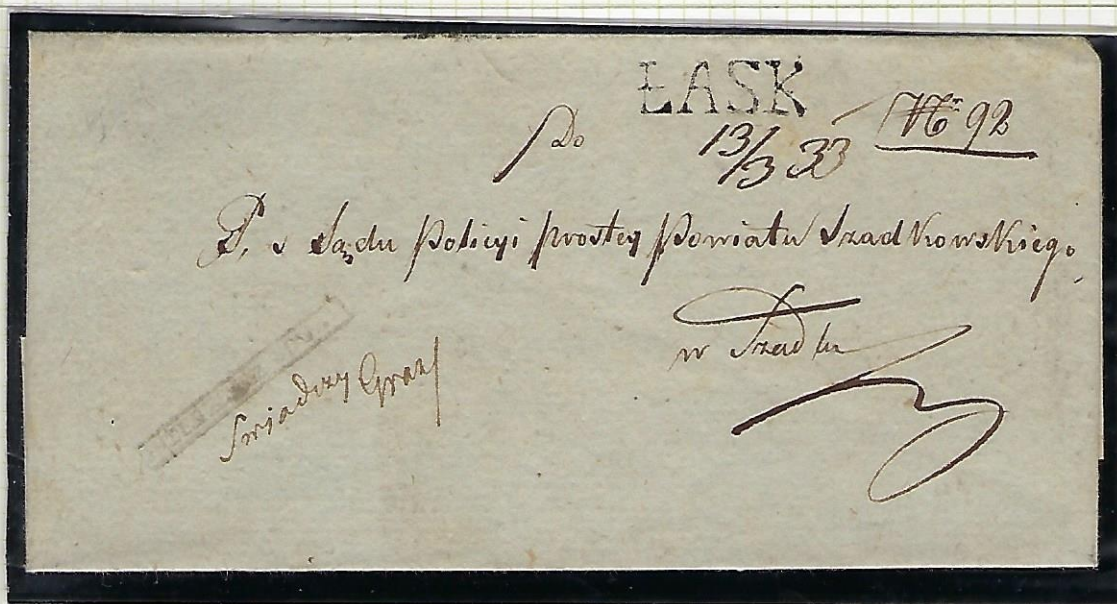 ŁASK
Nr 92
Do
13/3 33
P. s Sądu Policyi prostey Powiatu Szadkowskiego
w Szadku
Swiadczy